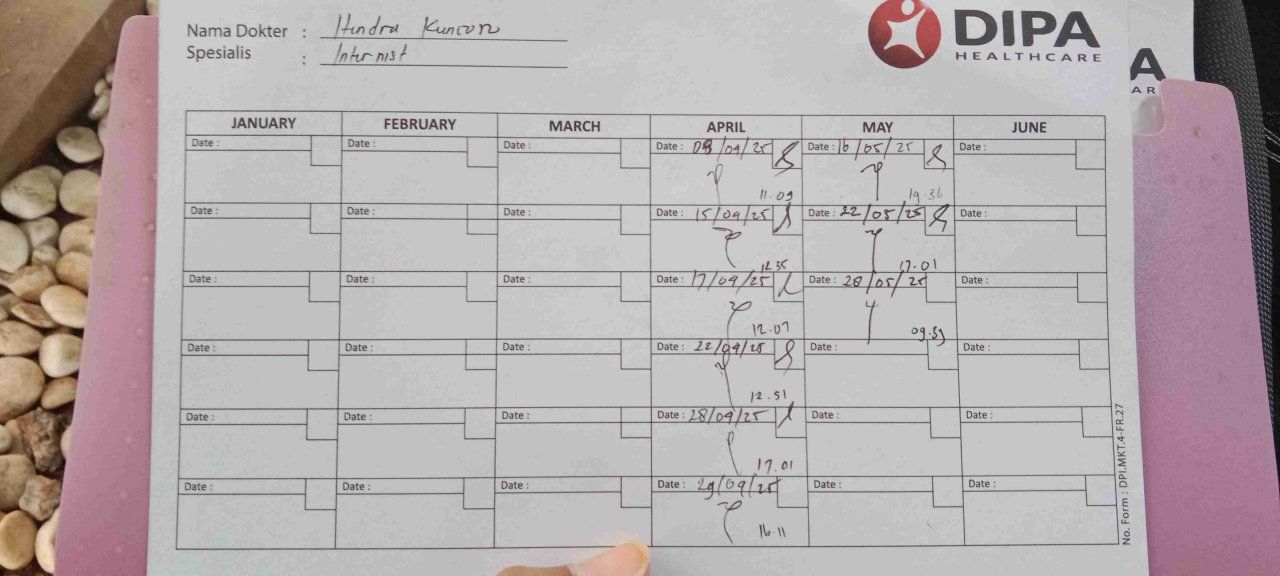 Nama Dokter : Hendra Kuncoro
Spesialis : Internist
DIPA
HEALTHCARE
A
AR
JANUARY FEBRUARY MARCH APRIL MAY JUNE
Date : Date : Date : Date : 08/04/25 Date : 16/05/25 Date :
11.09 19.36
Date : Date : Date : Date : 15/04/25 Date : 22/05/25 Date :
12.35 17.01
Date : Date : Date : Date : 17/04/25 Date : 28/05/25 Date :
12.07 09.53
Date : Date : Date : Date : 22/04/25 Date : Date :
12.51
Date : Date : Date : Date : 28/04/25 Date : Date :
17.01
Date : Date : Date : Date : 29/04/25 Date : Date :
16.11
No. Form : DPI.MKT.4-FR.27